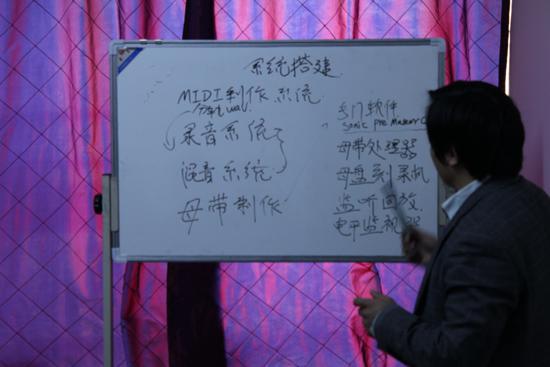 系统搭建
MIDI制作系统
录音系统
混音系统
母带制作
专门软件
Sonic Pre Master
母带处理器
母盘刻录机
监听回放
电平监视器